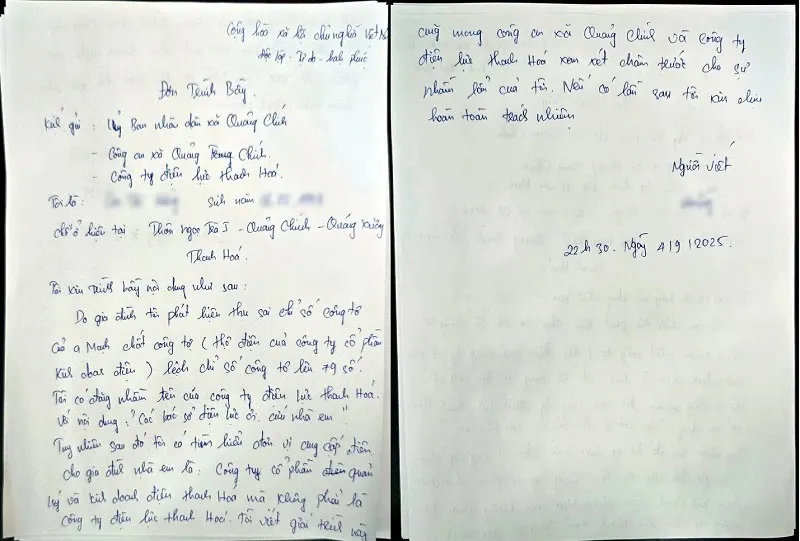 Cộng hòa xã hội chủ nghĩa Việt Na
Độc lập - Tự do - hạnh phúc
Đơn Trình Bầy.
Kính gửi : Uỷ Ban nhân dân xã Quảng Chính
- Công an xã Quảng Chính.
- Công ty điện lực thanh Hoá.
Tôi là : sinh năm
chỗ ở hiện tại : Thôn Ngọc Trà I - Quảng Chính - Quảng Xương
Thanh Hoá.
Tôi xin trình bầy nội dung như sau :
Do gia đình tôi phát hiện thu sai chỉ số công tơ
a Mạnh chốt công tơ ( thợ điện của công ty cổ phần
kinh doanh điện ) lệch chỉ số công tơ lên 79 số.
Tôi có đăng nhầm tên của công ty điện lực thanh Hoá.
Với nội dung : " Các bác sở điện lực ơi. cứu nhà em ".
Tuy nhiên sau đó tôi có tìm hiểu đơn vị cung cấp điện
cho gia đình nhà em là : Công ty cổ phần quản
lý và kinh doanh điện thanh Hoá mà không phải là
công ty điện lực thanh Hoá. Tôi viết giải trình này
cũng mong công an xã Quảng Chính và công ty
điện lực thanh Hoá xem xét châm trước cho sự
nhầm lẫn của tôi. Nếu có lần sau tôi xin chịu
hoàn toàn trách nhiệm
Người viết
22h 30. Ngày 4/9/2025.